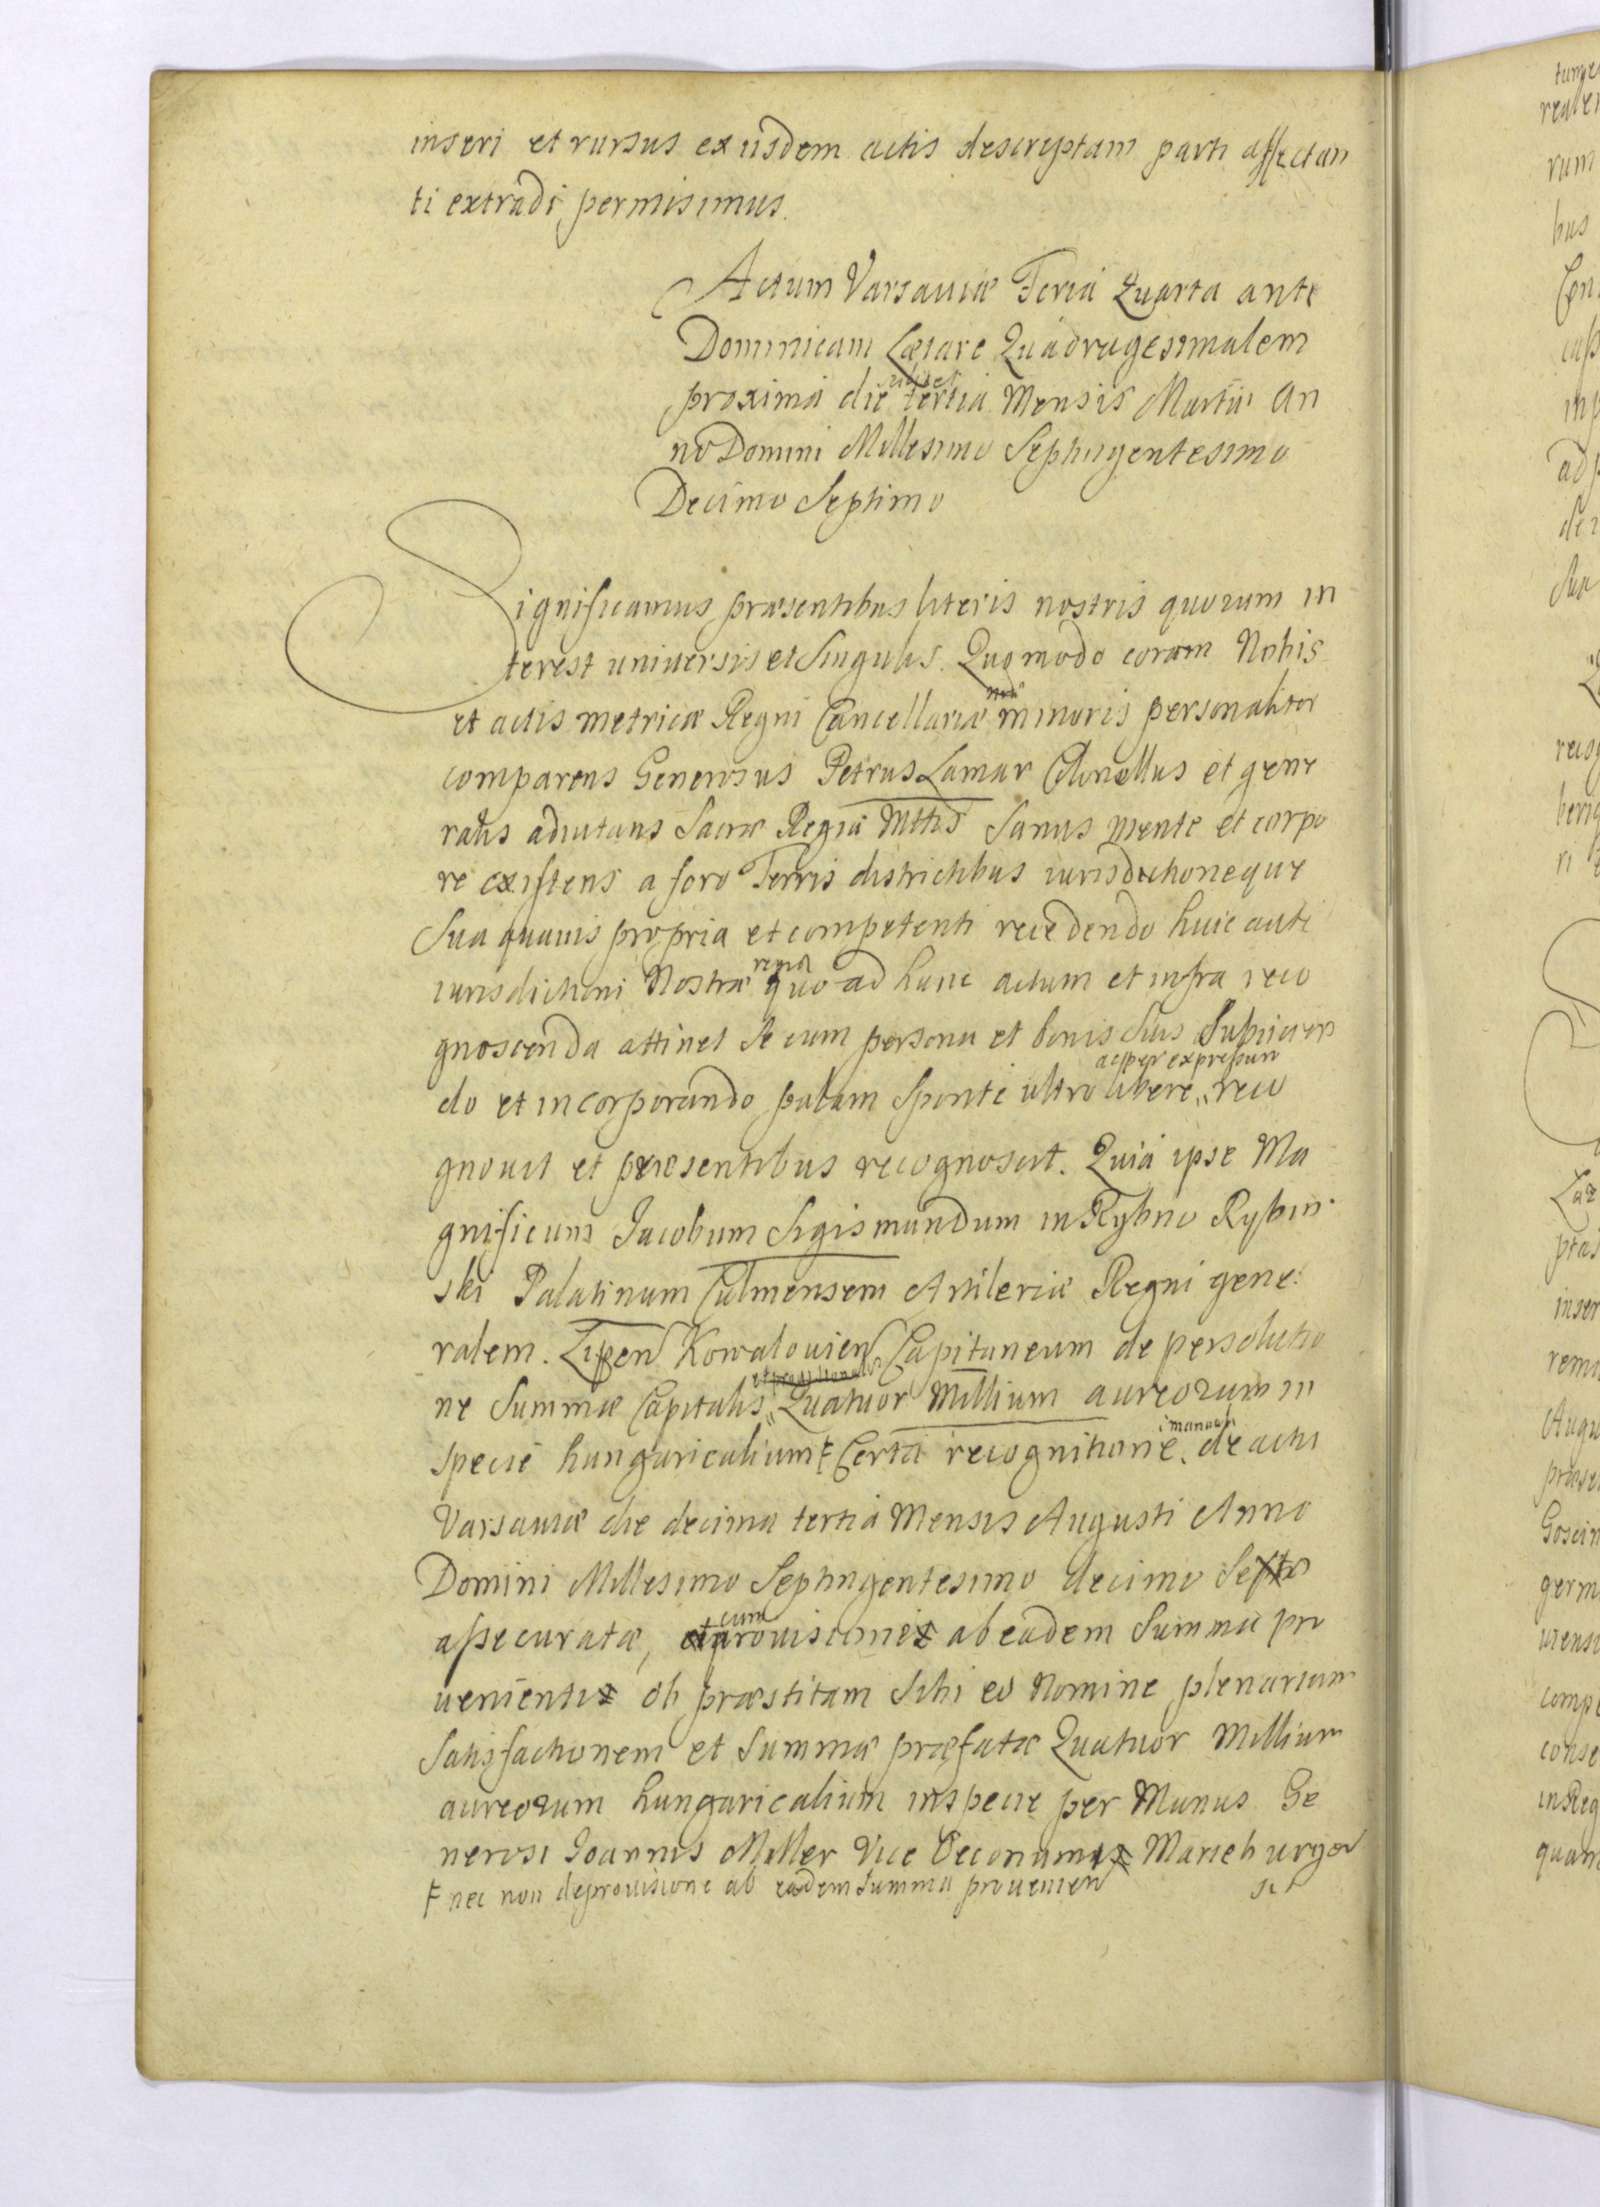 inseri et rursus ex iisdem actis descreptam parti affectan
ti extradi permisimus.
Actum Varsaviæ Feria Quarta ante
Dominicam Lætare Quadragesimalem
proxima die videlicet tertia Mensis Martii An
no Domini Millesimo Septingentesimo
Decimo Septimo
Significamus præsentibus literis nostris quorum in
terest universis et Singulis. Quomodo coram Nobis
et actis metricæ Regni Cancellariæ minoris personaliter
comparens Generosus Petrus Lamar Colonellus et gene
ralis adiutans Sacræ Regiæ Mttis Sanus mente et corpo
re existens a foro Terris districtibus iurisdictioneque
Sua quavis propria et competenti recedendo huic aute
iurisdictioni Nostræ regiæ quo ad hunc actum et infra reco
gnoscenda attinet Se cum persona et bonis Suis Subiicien
do et incorporando palam Sponte ultro libere ac per expressum reco
gnovit et præsentibus recognoscit. Quia ipse Ma
gnificum Jacobum Sigismundum in Rybno Rybin
ski Palatinum Culmensem Artileriæ Regni gene
ralem. Lipen Kowalovien Capitaneum de persolutio
ne Summæ Capitalis Quatuor Millium aureorum in
specie hungaricalium F Certa recognitione emanan de actu
Varsaviæ die decima tertia Mensis Augusti Anno
Domini Millesimo Septingentesimo decimo Sexto
assecuratæ, cum provisione ab eadem Summa pro
veniente ob præstitam Sibi eo Nomine plenariam
Satisfactionem et Summæ præfatæ Quatuor Millium
aureorum hungaricalium in specie per Manus Ge
nerosi Joannis Miller Vice Oeconomi Marieburgen
F nec non de provisione ab eadem Summa provenien
si